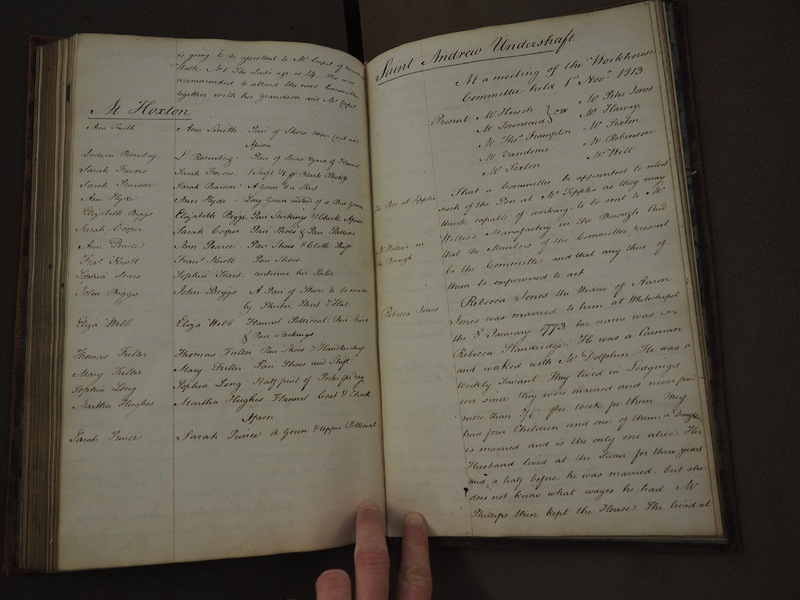 is going to be assistant to Mr Capel of
Walk No 1 The Lad's age is 14. She was
recommended to attend the next Committee
together with her grandson and Mr Capel
At Hoxton
Ann Smith Ann Smith - Pair of Shoes Upper Coat and
Apron
S. Rosenberg - Pair of Shoes & Gown of Flannel
Sarah Frewes Sarah Frewes
Sarah Pearson Sarah Pearson - A Gown & a Shift
Ann Hyde Ann Hyde - Long Gown instead of a Bed Gown
Elizabeth Biggs Elizabeth Biggs Pair Stockings & Check Apron
Sarah Cooper Sarah Cooper - Pair Shoes & Pair Pattens
Ann Pearce Ann Pearce - Pair Shoes & Cloth Shift
Fras Knott Frans Knott - Pair Shoes
Sophia Sears Sophia Sears - continue her Porter
John Biggs John Biggs - A Pair of Shoes to be made
by Shirt & Hat
Eliza Webb Eliza Webb Flannel Petticoat, Pair Shoes
& Pair Stockings
Thomas Fuller Thomas Fuller Pair Shoes & Handkerchief
Mary Fuller Mary Fuller - Pair Shoes and Shift
Sophia Long Sophia Long - Half pint of Porter per Day
Martha Hughes Martha Hughes Flannel Coat & Check
Apron
Sarah Prince Sarah Prince A Gown & Upper Petticoat
Saint Andrew Undershaft
At a meeting of the Workhouse
Committee held 1st Novr 1813
Present Mr Heusch } CW Mr Peter Jones
Mr Townsend Mr Harvey
Mr Thos Frampton Mr Sexton
Mr Vandome Mr Robinson
Mr Sexton Mr Witt
The Poor at Tipples That a Committee be appointed to select
such of the Poor at Mr Tipples as they may
think capable of working to be sent to Mr
Mr Willis's in the Borough Willis's Manufactory in the Borough And
that the Members of the Committee present
be the Committee and that any three of
them be empowered to act
Rebecca Jones Rebecca Jones the Widow of Aaron
Jones was married to him at Whitechapel
the 3d January 1773 her name was
Rebecca Standridge. He was a Carman
and worked with Mr Dolphin. He was a
Weekly Servant They lived in Lodgings
ever since they were married and never paid
more than 2/6 per Week for them They
had four Children and one of them a Daughter
is married and is the only one alive. Her
Husband lived at the Swan for three years
and a half before he was married. but she
does not know what wages he had Mr
Phillips then kept the House. She lived at